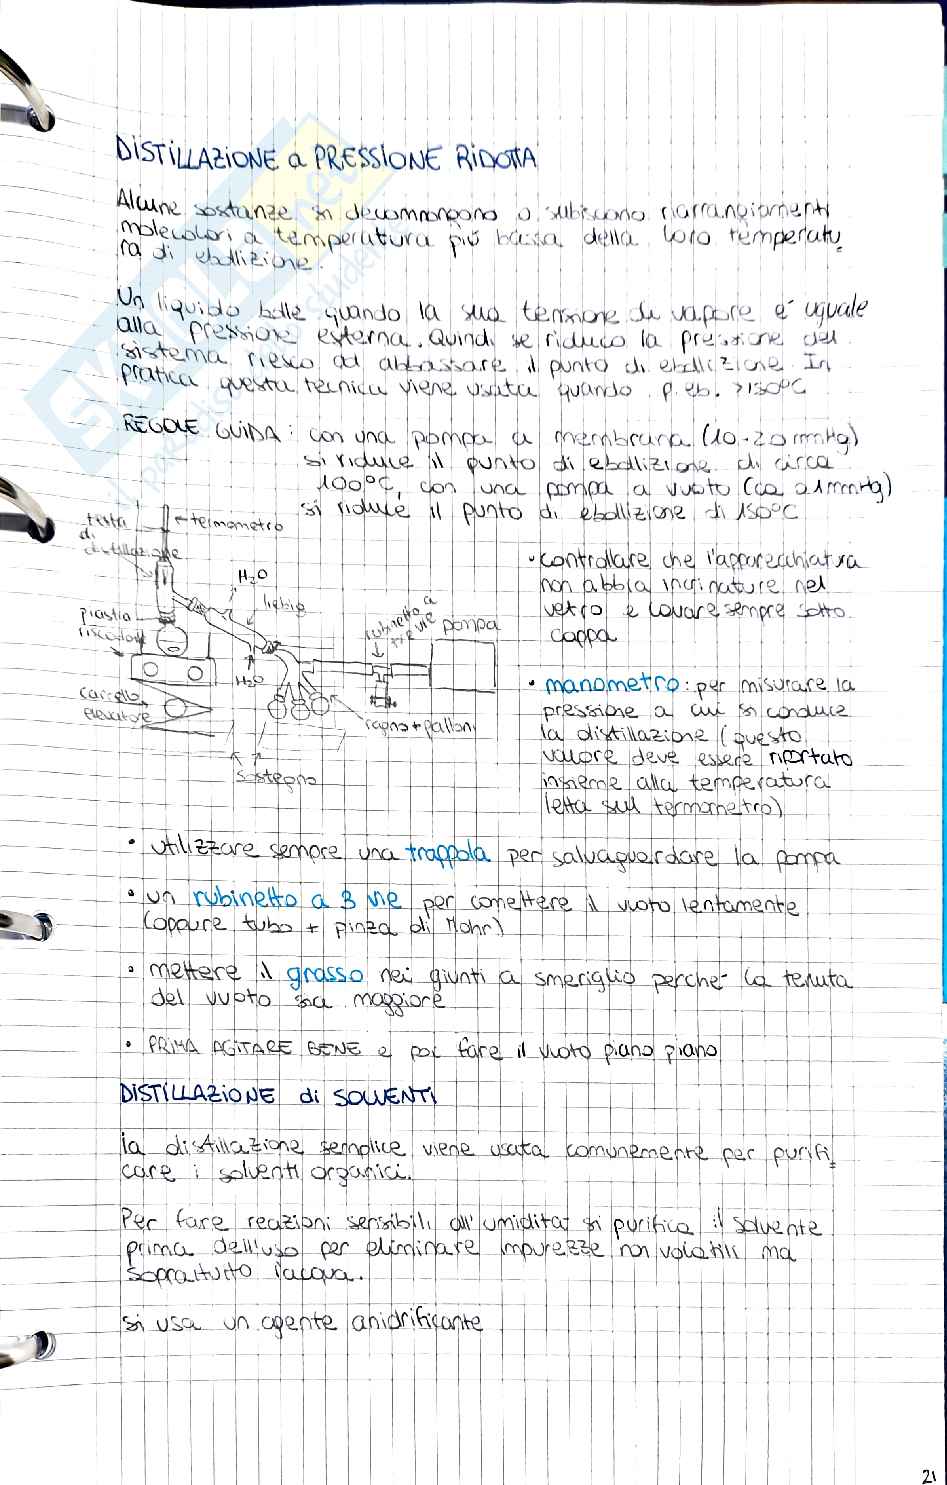 DISTILLAZIONE a PRESSIONE RIDOTTA
Alcune sostanze si decompongono o subiscono riarrangiamenti
molecolari a temperatura più bassa della loro temperatu
ra di ebollizione.
Un liquido bolle quando la sua tensione di vapore é uguale
alla pressione esterna. Quindi se riduco la pressione del
sistema riesco ad abbassare il punto di ebollizione. In
pratica questa tecnica viene usata quando p.eb. >150°C
REGOLE GUIDA: con una pompa a membrana (10-20 mmHg)
si riduce il punto di ebollizione di circa
100°C, con una pompa a vuoto (ca 0.1mmHg)
si riduce il punto di ebollizione di 150°C
testa
di
distillazione
termometro
H₂O
liebig
piastra
riscaldante
rubinetto a
tre vie
pompa
H₂O
carrello
elevatore
ragno + palloni
sostegno
• controllare che l'apparecchiatura
non abbia incrinature nel
vetro e lavorare sempre sotto
cappa
• manometro: per misurare la
pressione a cui si conduce
la distillazione (questo
valore deve essere riportato
insieme alla temperatura
letta sul termometro)
• utilizzare sempre una trappola per salvaguardare la pompa
• un rubinetto a 3 vie per connettere il vuoto lentamente
(oppure tubo + pinza di Mohr)
• mettere il grasso nei giunti a smeriglio perché la tenuta
del vuoto sia maggiore
• PRIMA AGITARE BENE e poi fare il vuoto piano piano
DISTILLAZIONE di SOLVENTI
la distillazione semplice viene usata comunemente per purifi
care i solventi organici.
Per fare reazioni sensibili all'umidità si purifica il solvente
prima dell'uso per eliminare impurezze non volatili ma
soprattutto l'acqua.
si usa un agente anidrificante
21